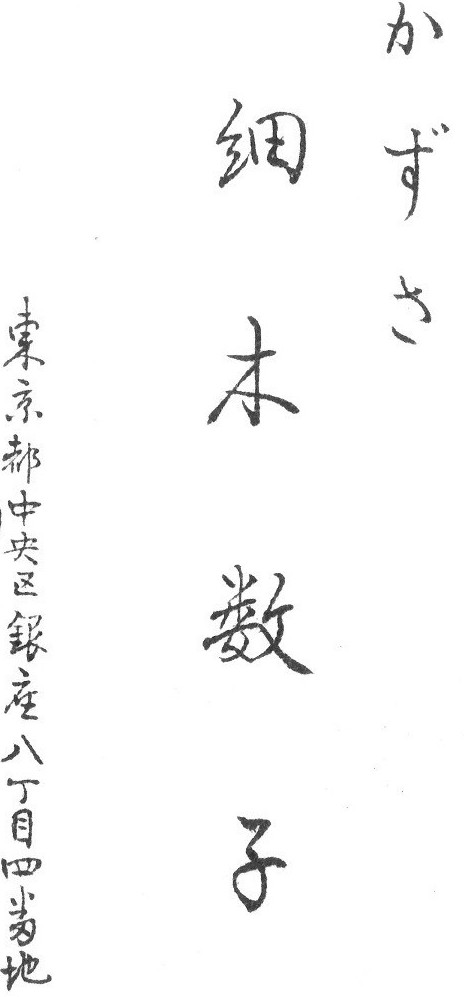 かずさ
細木数子
東京都中央区銀座八丁目四番地